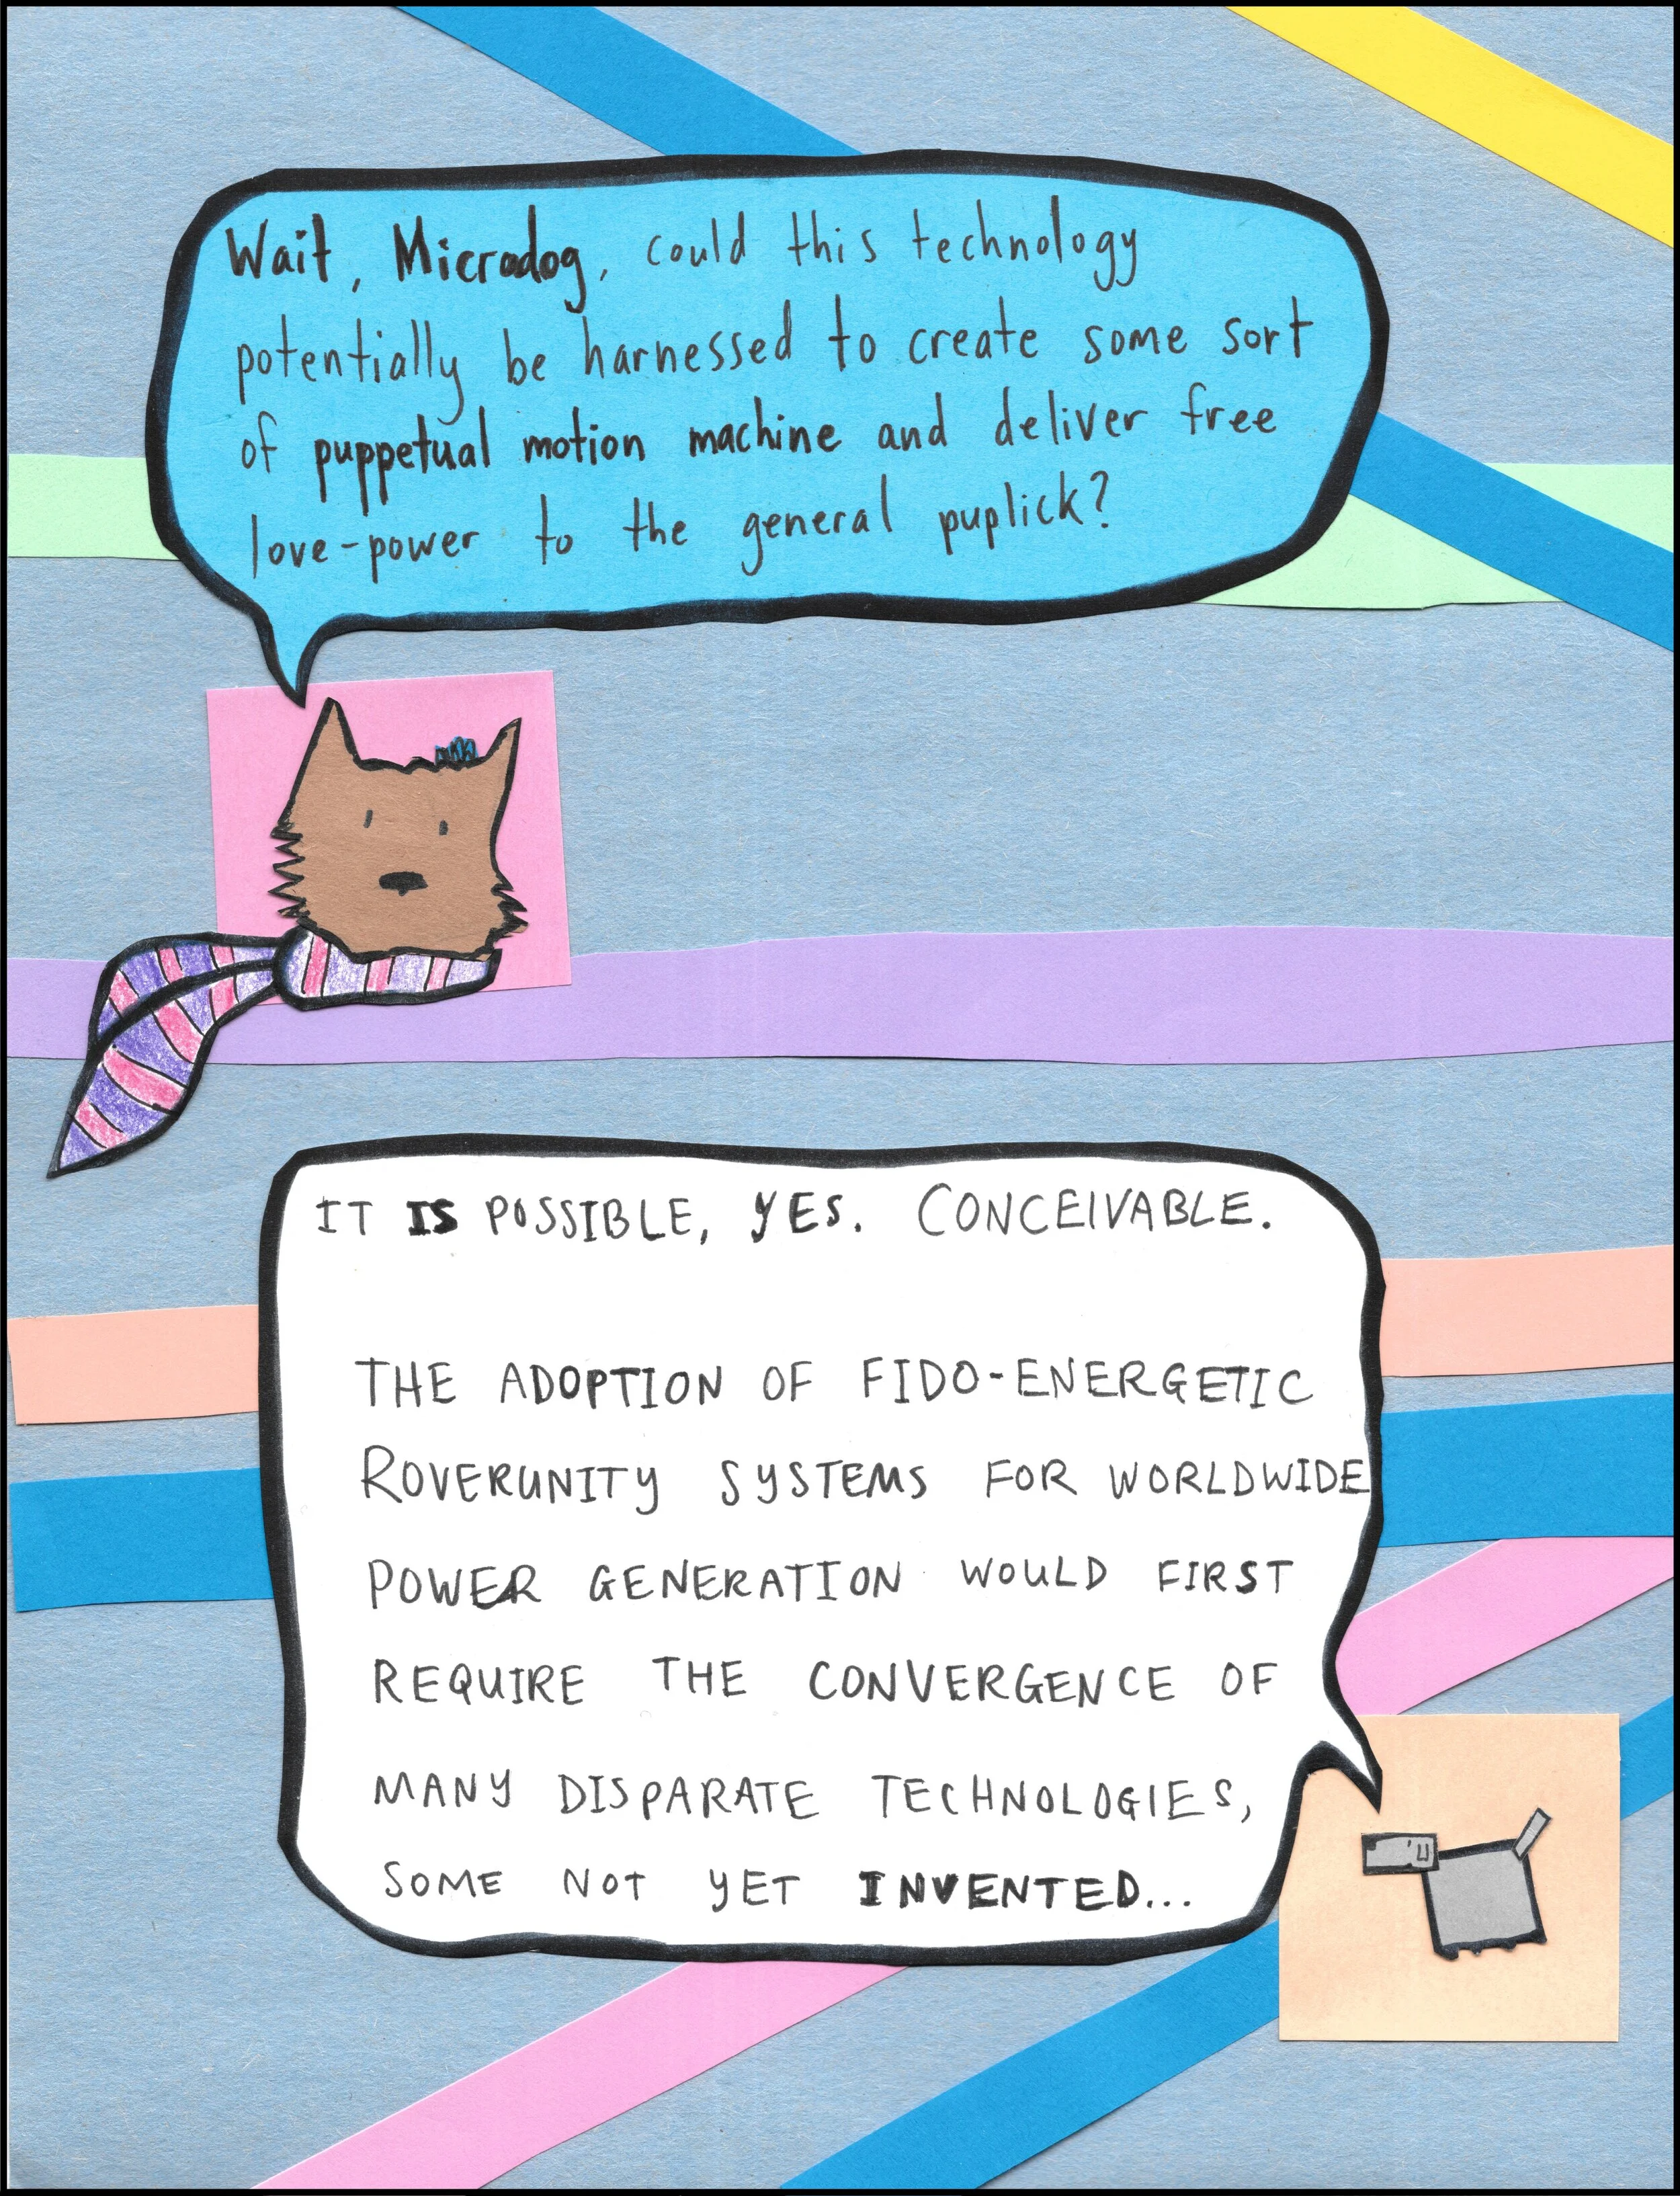 Wait, Microdog, could this technology
potentially be harnessed to create some sort
of puppetual motion machine and deliver free
love-power to the general puplick?
IT IS POSSIBLE, YES. CONCEIVABLE.
THE ADOPTION OF FIDO-ENERGETIC
ROVERUNITY SYSTEMS FOR WORLDWIDE
POWER GENERATION WOULD FIRST
REQUIRE THE CONVERGENCE OF
MANY DISPARATE TECHNOLOGIES,
SOME NOT YET INVENTED...